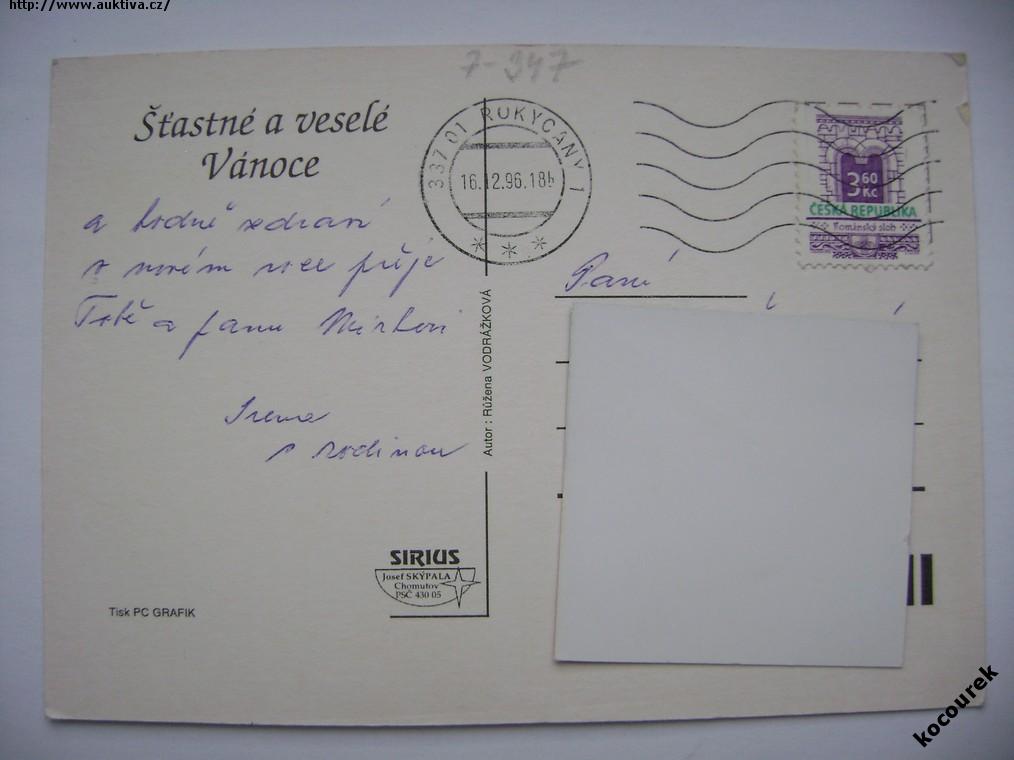 http://www.auktiva.cz/
7-347
Šťastné a veselé
Vánoce
a hodně zdraví
v novém roce přeje
Tobě a panu Mirkovi
Irena
s rodinou
337 01 ROKYCANY 1
16.12.96.18h
3 60 Kč
ČESKÁ REPUBLIKA
Románský sloh
Paní
Autor : Růžena VODRÁŽKOVÁ
SIRIUS
Josef SKÝPALA
Chomutov
PSČ 430 05
Tisk PC GRAFIK
kocourek